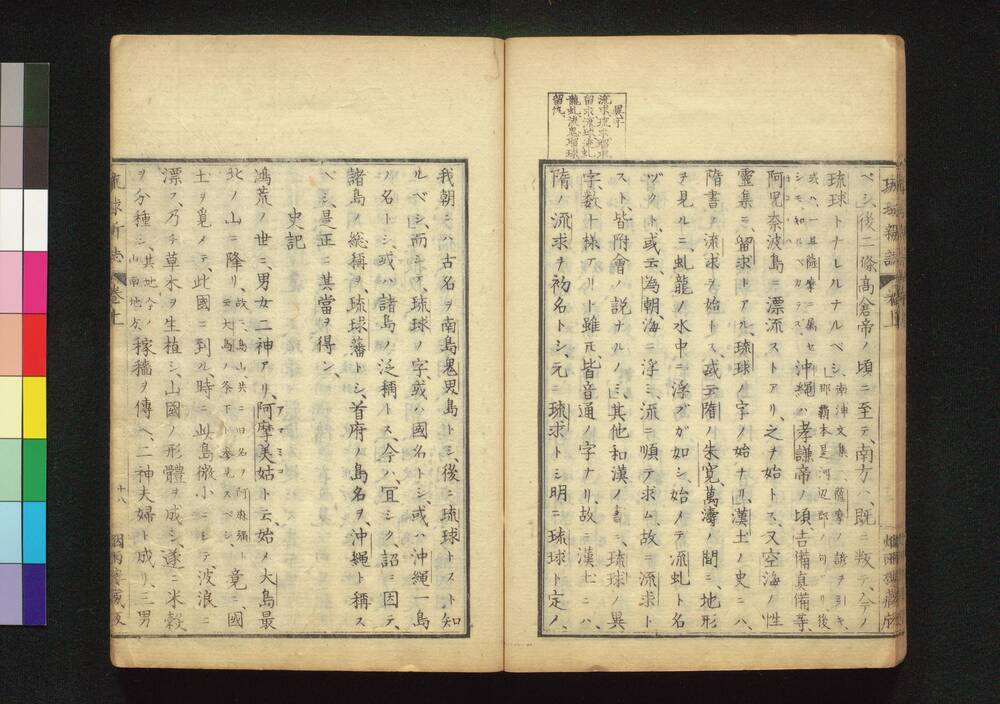 異字
流求琉求瑠求
留求流球流虬
龍虬流鬼瑠球
留仇
ベシ、後二條高倉帝ノ頃ニ至テ、南方ハ、既ニ叛テ、今ノ
琉球トナレルナルベシ、南浦文集ニ、薩摩ノ諺ヲ引キ、
或ハ、一其薩摩ニ屬セ
シモ、知ルベカラズ、沖繩ハ孝謙帝ノ頃、吉備真備等、
阿児奈波島ニ漂流ストアリ、之ヲ始トス、又空海ノ性
靈集ニ、留求トアル、琉球ノ字ノ始ナリ、漢土ノ史ニハ、
隋書ノ流求ヲ始トス、或云隋ノ朱寛萬濤ノ間ニ、地形
ヲ見ルニ、虬龍ノ水中ニ浮ブガ如シ、始メテ流虬ト名
ヅクト、或云、為朝、海ニ浮ミ、流ニ順テ求ム、故ニ流求ト
スト、皆附會ノ説ナルノミ、其他和漢ノ書ニ、琉球ノ異
字、數十様アリト雖氏、皆音通ノ字ナリ、故ニ漢土ニハ、
隋ノ流求ヲ初名トシ、元ニ琉求トシ明ニ琉球ト定ノ、
我朝ニハ古名ヲ南島鬼界島トシ、後ニ琉球トスト知
ルベシ、而シテ、琉球ノ字、或ハ國名トシ、或ハ沖繩一島
ノ名トシ、或ハ諸島ノ泛稱トス、今ハ、宜シク詔ニ因テ、
諸島ノ総稱ヲ、琉球藩トシ、首府ノ島名ヲ、沖繩ト稱ス
ベシ、是正ニ其當ヲ得ン、
史記
鴻荒ノ世ニ、男女二神アリ、阿摩美姑ト云、始メ大島最
北ノ山ニ降リ、故ニ島山共ニ曰名ヲ阿麻彌ト
云大島ノ条下ト參見スベシ、竟ニ、國
土ヲ覓メテ、此國ニ到ル、時ニ此島微小ニシテ、波浪ニ
漂フ、乃チ草木ヲ生植シ、山國ノ形體ヲ成シ、遂ニ米穀
ヲ分種シ、其地今ノ
山南地方稼穡ヲ傳ヘ、二神夫婦ト成リ、三男
琉球新誌 巻上
十八